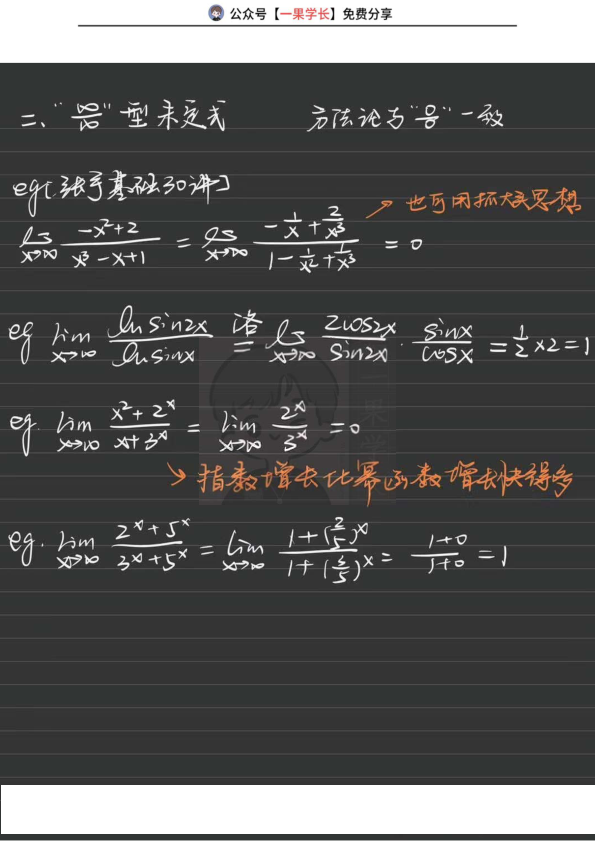 公众号【一果学长】免费分享
二、“∞/∞”型未定式 方法论与“0/0”一致
eg[张宇基础30讲]
→ 也可用抓大头思想
lim x→∞ (-x²+2)/(x³-x+1) = lim x→∞ (-1/x+2/x³)/(1-1/x²+1/x³) = 0
eg lim x→∞ ln sin2x/ln sinx 洛= lim x→∞ 2cos2x/sin2x · sinx/cosx = 1/2×2=1
eg. lim x→∞ (x²+2^x)/(x+3^x) = lim x→∞ 2^x/3^x = 0
↘ 指数增长比幂函数增长快得多
eg. lim x→∞ (2^x+5^x)/(3^x+5^x) = lim x→∞ (1+(2/5)^x)/(1+(3/5)^x) = (1+0)/(1+0) = 1